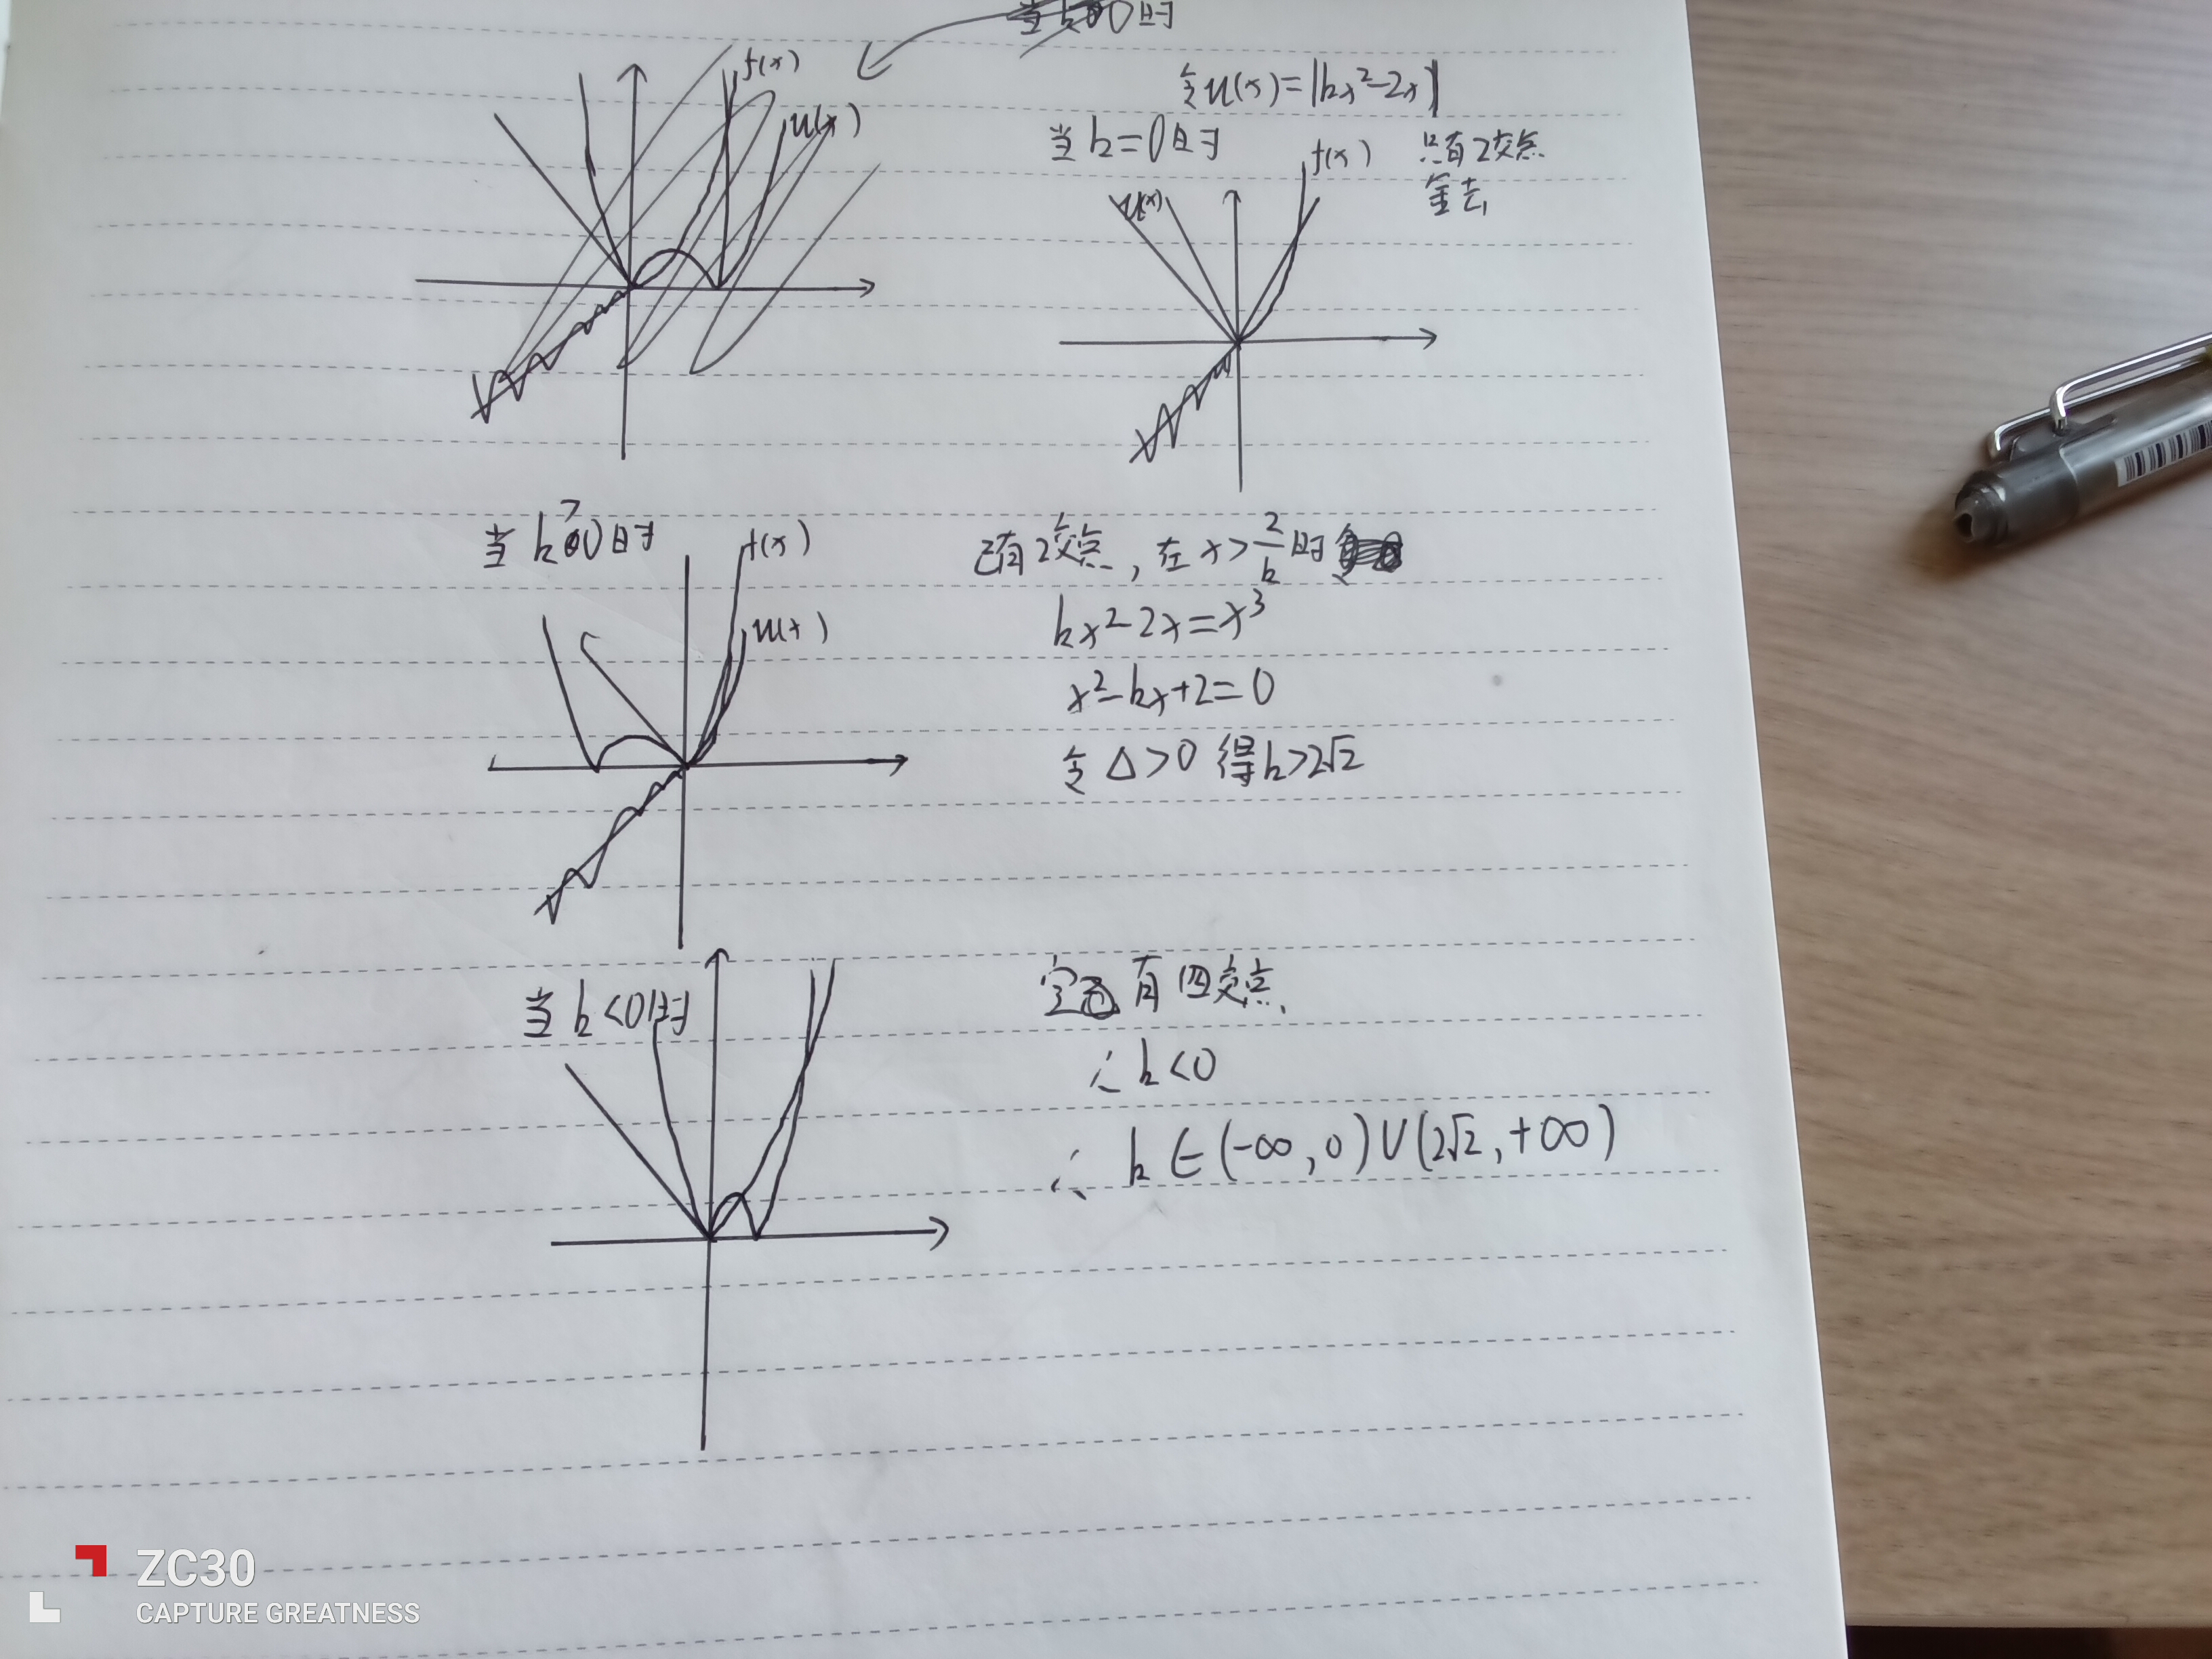 当k<0时
f(x)
u(x)
令u(x)=|kx²-2x|
当k=0时
f(x)
只有2交点
舍去
u(x)
当k>0时
f(x)
u(x)
已有2交点,在x>2/k时
kx²-2x=x³
x²-kx+2=0
令Δ>0 得k>2√2
当k<0时
定 有四交点
∴k<0
∴ k∈(-∞,0)∪(2√2,+∞)
ZC30
CAPTURE GREATNESS